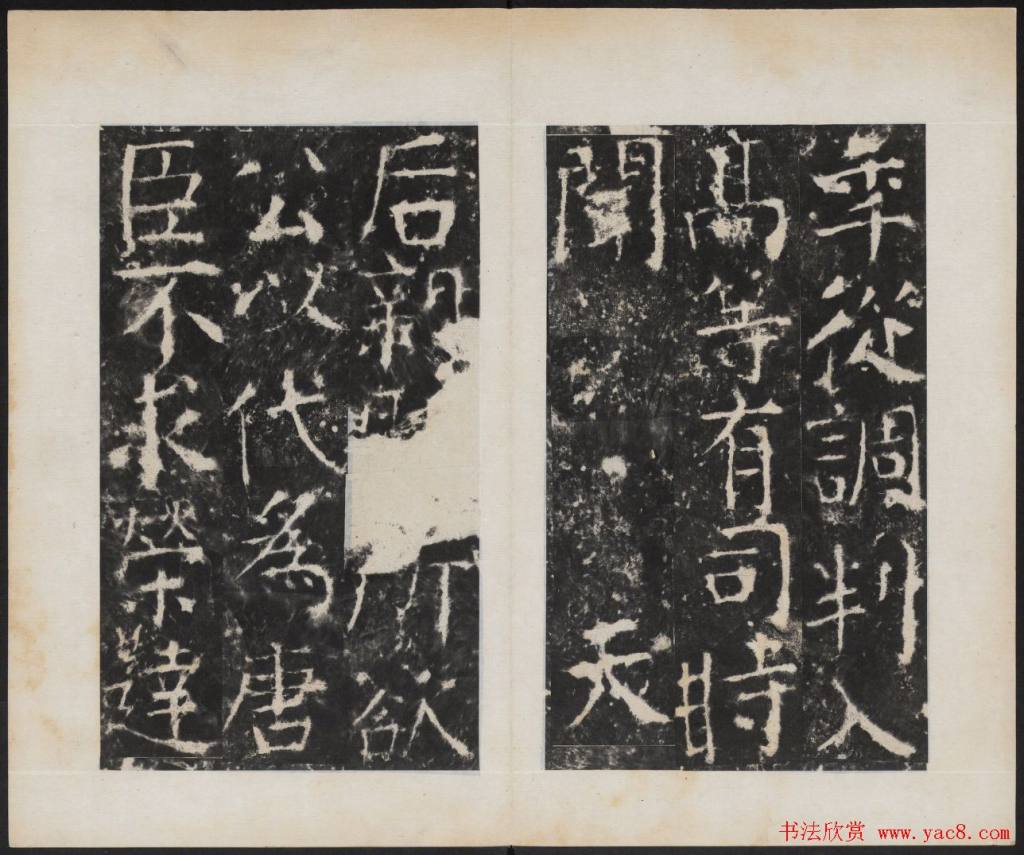 年從調判入
高等有司時
聞天
后親所欲
公以代為唐
臣不求榮達
书法欣赏 www.yac8.com